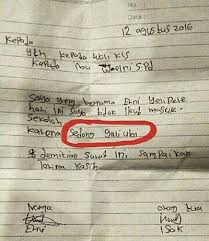 12 agustus 2016
Kepada
Yth Kepada Wali Kls
Kepada Ibu S.Pd
Saya yang bernama Erni Yeni Pele
hari ini saya tidak ikut masuk
Sekolah
karena Sedang gali ubi
demikian Surat ini Sampaikan
terima kasih
Nama orang tua
Erni ISak